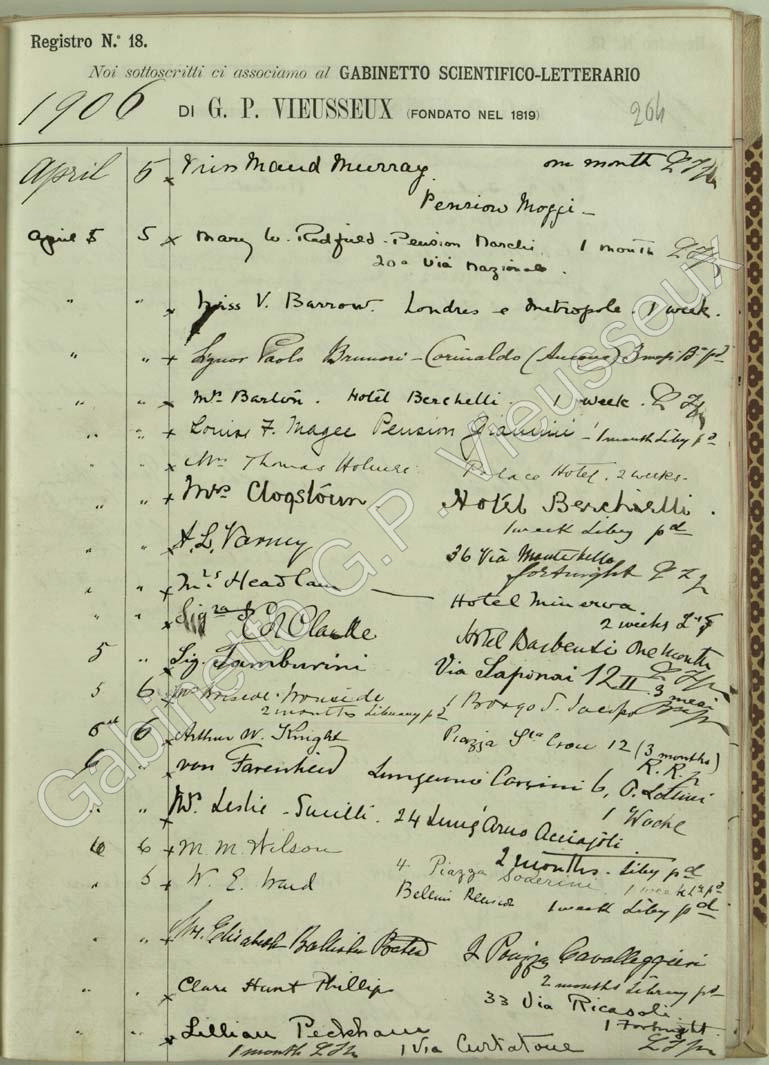 Registro N.° 18.
Noi sottoscritti ci associamo al GABINETTO SCIENTIFICO-LETTERARIO
1906 DI G. P. VIEUSSEUX (FONDATO NEL 1819) 264
April 5 x Miss Maud Murray. one month
Pension Moggi -
April 5 5 x Mary W. Redfield - Pension Marchi. 1 month
20a Via Nazionale.
" " x Miss V. Barrow. Londres e Metropole. 1 week.
" " x Signor Paolo Brunori - Corinaldo (Ancona) 3 mesi
" " x Mrs Barton. Hotel Berchielli. 1 week.
" " x Louise F. Magee Pension Giannini - 1 month Liby pd
" " x Mrs Thomas Holmes. Palace Hotel. 2 weeks.
" " x Mrs Clogstoun. Hotel Berchielli.
1 week Libry pd
" " x A. L. Varney 36 Via Montebello
fortnight
" " x Mrs Headlam — Hotel Minerva.
2 weeks
" " x Clarke Hotel one month
5 " x Sig. Tamburini Via Laponai 12 II 3 mesi
5 6 x 1 Borgo S. Jacopo
2 months Library pd
6 x Arthur W. Knight Piazza Sta Croce 12 (3 months)
R.R.
6 " x von Farenheid Lungarno Corsini 6,
1 Woche
" " x Leslie - 24 Lung' Arno Acciajoli.
2 months. Liby pd
6 6 x M. M. Wilson 4 Piazza Soderini. 1 week
" 6 x W. E. Ward Bellini Pension
1 week Liby pd
" " x Elisabeth 2 Piazza Cavalleggieri
2 months Library pd
" " x Clare Hunt Phillips 33 Via Ricasoli
1 Fortnight
" " x Lillian Peckham
1 month 1 Via Curtatone
Gabinetto G.P. Vieusseux